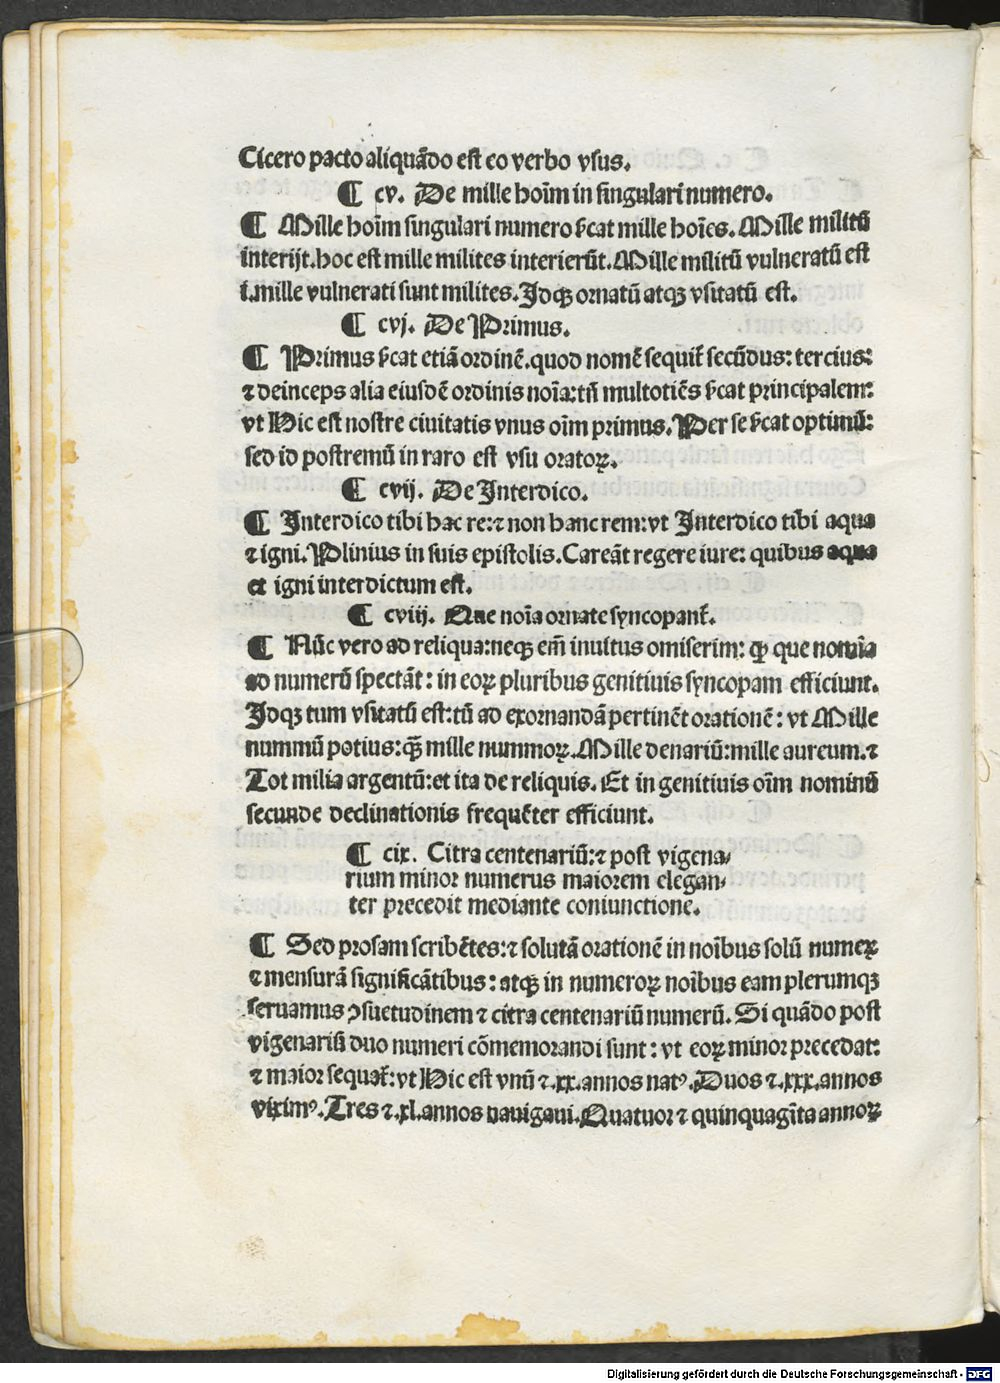 Cicero pacto aliquādo est eo verbo vsus.
¶ cv. De mille hoīm in singulari numero.
¶ Mille hoīm singulari numero ſcat mille hoīes. Mille militū
interijt. hoc est mille milites interierūt. Mille militū vulneratū est
i. mille vulnerati sunt milites. Idqꝫ ornatū atqꝫ vsitatū est.
¶ cvj. De Primus.
¶ Primus ſcat etiā ordinē. quod nomē sequit̄ secūdus: tercius:
⁊ deinceps alia eiusdē ordinis noīa: tn̄ multotiēs ſcat principalem:
vt Hic est nostre ciuitatis vnus oīm primus. Per se ſcat optimū:
sed id postremū in raro est vsu oratoꝝ.
¶ cvij. De Interdico.
¶ Interdico tibi hac re: ⁊ non hanc rem: vt Interdico tibi aqua
⁊ igni. Plinius in suis epistolis. Careāt regere iure: quibus aqua
et igni interdictum est.
¶ cviij. Que noīa ornate syncopant̄.
¶ Nūc vero ad reliqua: neqꝫ em̄ inuitus omiserim: ꝙ que nomīa
ad numerū spectāt: in eoꝝ pluribus genitiuis syncopam efficiunt.
Idqꝫ tum vsitatū est: tū ad exornandā pertinēt orationē: vt Mille
nummū potius: qꝫ̄ mille nummoꝝ. Mille denariū: mille aureum. ⁊
Tot milia argentū: et ita de reliquis. Et in genitiuis oīm nominū
secunde declinationis frequēter efficiunt.
¶ cix. Citra centenariū: ⁊ post vigena/
rium minor numerus maiorem elegan/
ter precedit mediante coniunctione.
¶ Sed prosam scribētes: ⁊ solutā orationē in noībus solū numeꝝ
⁊ mensurā significātibus: atqꝫ in numeroꝝ noībus eam plerumqꝫ
seruamus ꝯsuetudinem ⁊ citra centenariū numerū. Si quādo post
vigenariū duo numeri cōmemorandi sunt: vt eoꝝ minor precedat:
⁊ maior sequat̄: vt Hic est vnū ⁊ .xx. annos natꝰ. Duos ⁊ .xxx. annos
viximꝰ. Tres ⁊ .xl. annos nauigaui. Quatuor ⁊ quinquagīta annoꝝ
Digitalisierung gefördert durch die Deutsche Forschungsgemeinschaft - DFG